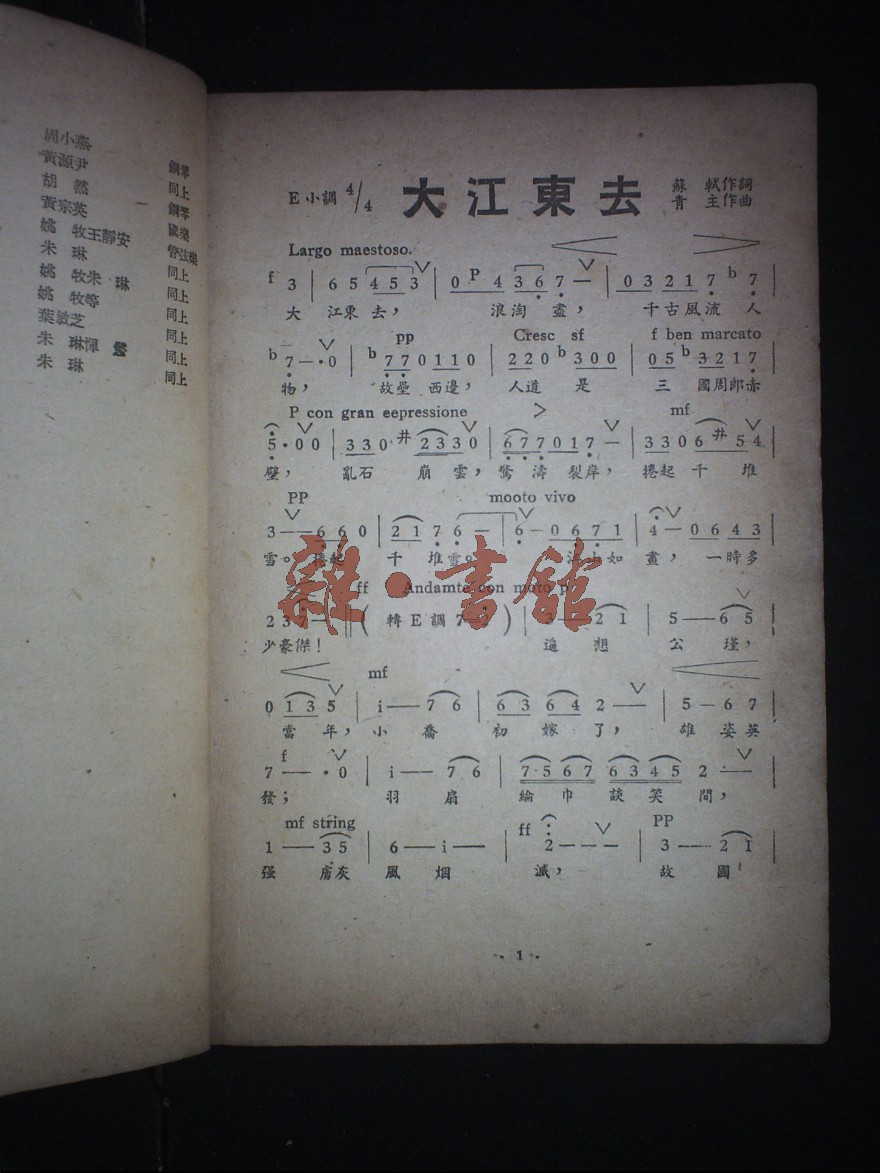 周小燕
黃源尹 鋼琴
胡 然 同上
黃宗英 鋼琴
姚 牧王靜安 國樂
朱 琳 管弦樂
姚 牧朱 琳 同上
姚 牧等 同上
葉敏芝 同上
朱 琳 同上
朱 琳 同上
E 小調 4/4 大江東去 蘇 軾作詞
青 主作曲
Largo maestoso.
f 3 | 6 5 4 5 3 | 0 P 4 3 6 7 — | 0 3 2 1 7 b 7 |
大 江東去, 浪淘盡, 千古風流 人
pp Cresc sf f ben marcato
b 7 — · 0 | b 7 7 0 1 1 0 | 2 2 0 b 3 0 0 | 0 5 b 3 2 1 7
物, 故壘 西邊, 人道 是 三 國周郎赤
P con gran eepressione > mf
5 · 0 0 | 3 3 0 井 2 3 3 0 | 6 7 7 0 1 7 — | 3 3 0 6 井 5 4
壁, 亂石 崩 雲, 驚 濤 裂岸, 捲起 千 堆
PP mooto vivo
3 — — 6 6 0 | 2 1 7 6 — | 6 — 0 6 7 1 | 4 — 0 6 4 3
雪。捲起 千 堆雪。 江山如 畫, 一時多
ff Andamte con moto p
2 3 7 — ‖ ( 轉 E 調 7 — 2 ) | 3 — 2 1 | 5 — 6 5
少豪傑! 遙 想 公 瑾,
mf
0 1 3 5 | i — 7 6 | 6 3 6 4 2 — | 5 — 6 7
當 年, 小 喬 初 嫁 了, 雄 姿英
f
7 — · 0 | i — 7 6 | 7 5 6 7 6 3 4 5 2 — |
發; 羽 扇 綸 巾 談 笑 間,
mf string ff PP
1 — 3 5 | 6 — i — | 2 — — | 3 — 2 1 |
强 虜灰 風 烟 滅, 故 國
· 1 ·
雜·書館